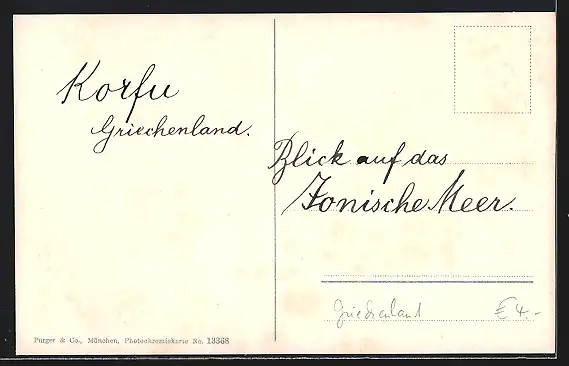 Korfu
Griechenland.
Blick auf das
Ionische Meer.
Griechenland € 4.-
Purger & Co., München, Photochromiekarte No. 13368